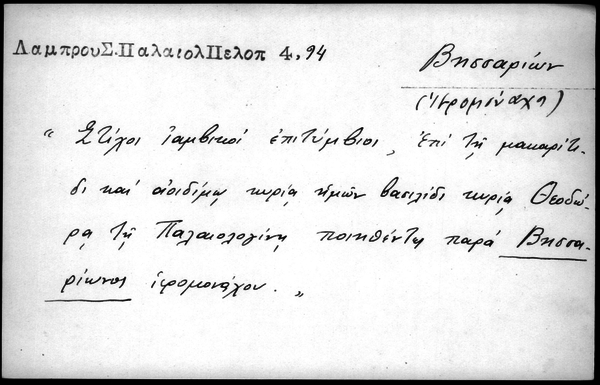 ΛαμπρουΣ.ΠαλαιολΠελοπ 4,94
Βησσαρίων
(ἱερομόναχος)
" Στίχοι ἰαμβικοί ἐπιτύμβιοι, ἐπί τῇ μακαρίτι-
δι καί ἀοιδίμῳ κυρίᾳ ἡμῶν βασιλίδι κυρίᾳ Θεοδώ-
ρᾳ τῇ Παλαιολογίνῃ ποιηθέντες παρά Βησσα-
ρίωνος ἱερομονάχου. "